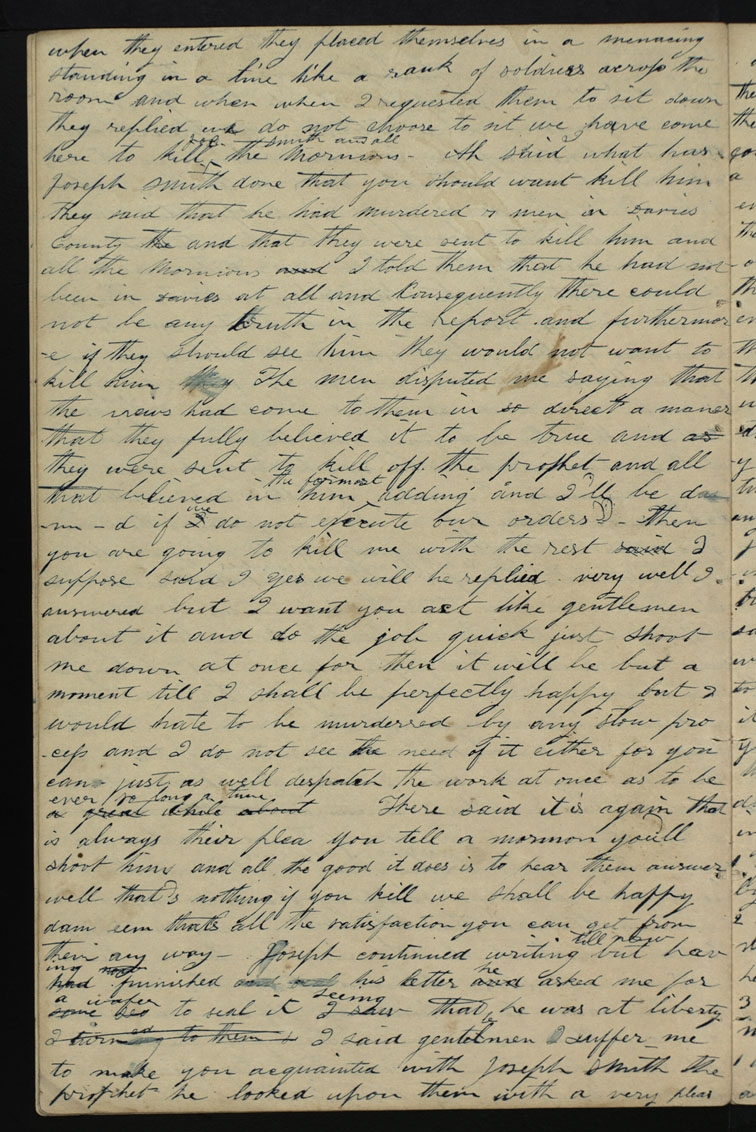 when they entered they placed themselves in a menacing
standing in a line like a rank of soldiers across the
room and when when I requested them to sit down
they replied we do not choose to sit we have come
here to kill Joe Smith and all the Mormons - Ah said what has
Joseph Smith done that you should want kill him
they said that he had murdered 7 men in Davies
County the and that they were sent to kill him and
all the Mormons and I told them that he had not
been in Davies at all and Consequently there could
not be any truth in the report and furthermor
-e if they should see him they would not want to
kill him they The men disputed me saying that
the news had come to them in so direct a maner
that they fully believed it to be true and as
they were sent to kill off the prophet and all
that believed in him the formost adding and I'll be da
-m - d if I we do not execute our orders - Then
you are going to kill me with the rest said I
suppose said I yes we will he replied very well I
answered but I want you act like gentlemen
about it and do the job quick just shoot
me down at once for then it will be but a
moment till I shall be perfectly happy but I
would hate to be murderred by any slow pro
-cess and I do not see the need of it either for you
can just as well despatch the work at once as to be
ever so long a time
a great while about There said it is again that
is always their plea you tell a mormon you'll
shoot him and all the good it does is to hear them answer
well that's nothing if you kill we shall be happy
dam eem that's all the satisfaction you can get from
their any way - Joseph continued writing till now but hav
ing now
had finnished his letter and he asked me for
a wafer seeing
some to seal it I saw that he was at liberty
I turned to them & I said gentlemen suffer me
to make you acquainted with Joseph Smith the
prophet he looked upon them with a very pleas